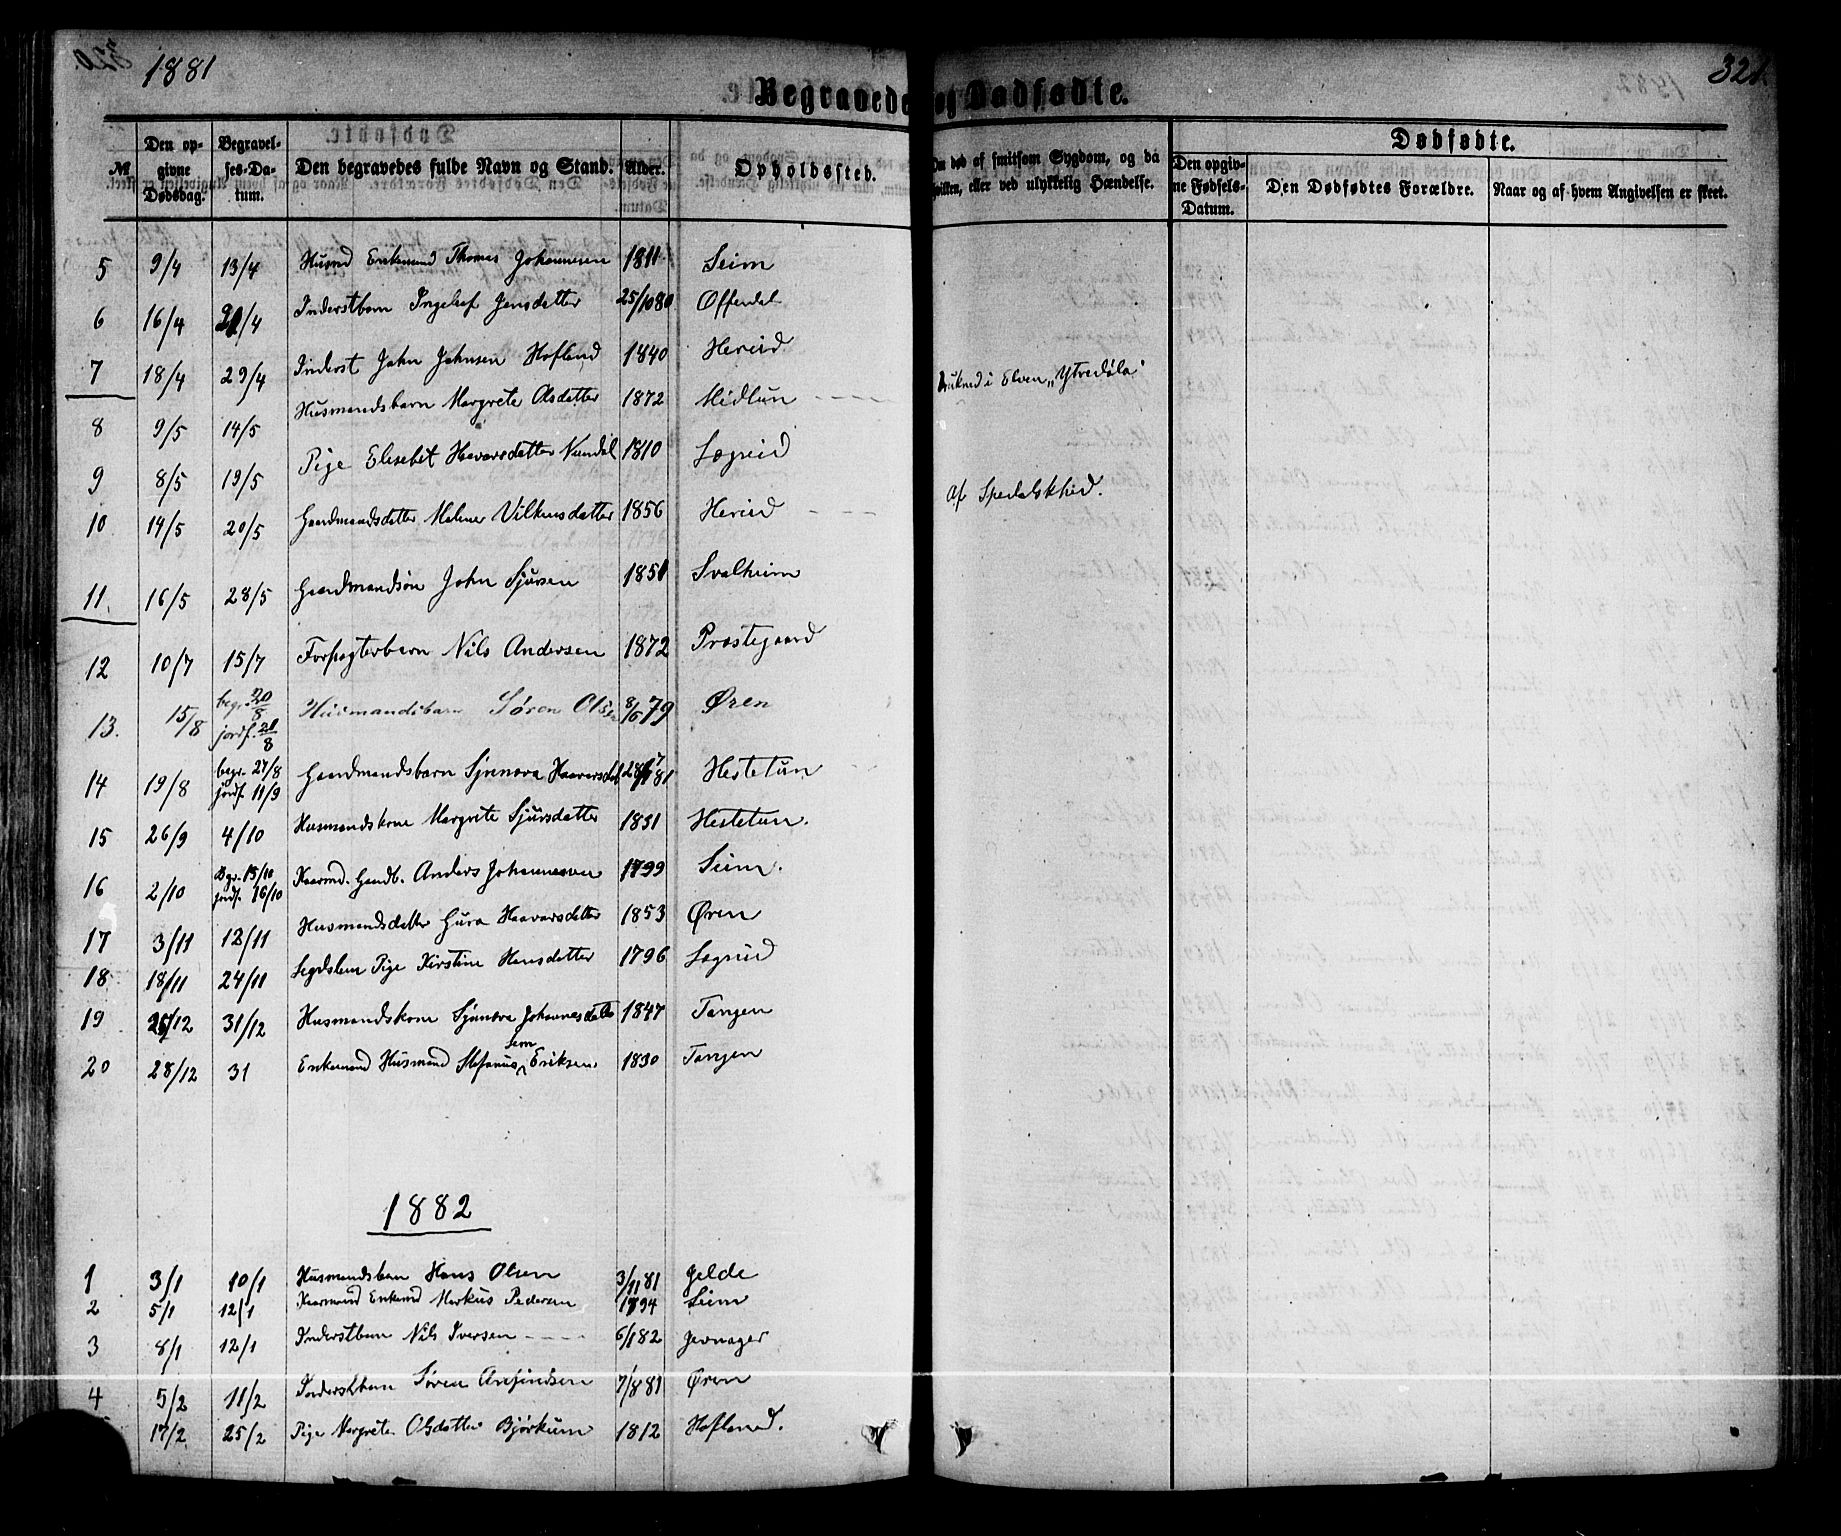 1881
321.
Begravede og Dødfødte.
№
Den opgivne Dødsdag.
Begravelses-Datum.
Den begravedes fulde Navn og Stand.
Alder.
Opholdssted.
Om død af smitsom Sygdom, og da hvilken, eller ved ulykkelig Hændelse.
Dødfødte.
Den opgivne Fødsels-Datum.
Den Dødfødtes Forældre.
Naar og af hvem Angivelsen er skeet.
5 9/4 13/4 Husmd Enkemand Thomas Johannesen 1811 Seim
6 16/4 21/4 Inderstbarn Ingeleif Jensdatter 25/10 80 Offerdal
7 18/4 29/4 Inderst John Johnsen Hofland 1840 Hereid Drukned i Elven „Ytredøla"
8 9/5 14/5 Husmandsbarn Margrete Olsdatter 1872 Midlun
9 8/5 19/5 Pige Elisebet Haavarsdatter Nundal 1810 Sogneid Af Spedalskhed.
10. 14/5 20/5 Gaardmandsdatter Malene Vilkensdatter 1856 Hereid
11. 16/5 28/5 Gaardmandsøn John Sjursen 1851 Svalheim
12 10/7 15/7 Forpagterbarn Nils Andersen 1872 Præstegaard
13. 15/8 begr. 20/8 jordf. 21/8 Husmandsbarn Søren Olsen 8/6 79 Øren
14 19/8 begr. 27/8 jordf. 11/9 Gaardmandsbarn Synneva Haavarsdat 81 Hestetun
15 26/9 4/10 Husmandskone Margrete Sjursdatter 1831 Hestetun.
16 2/10 Bgr. 15/10 jordf. 16/10 Kaarmd. Gaardb. Anders Johannesen 1799 Seim.
17 3/11 12/11 Husmandsdatter Gura Haavarsdatter 1853 Øren
18. 18/11 24/11 Legdslem Pige Kirstine Hansdatter 1796 Sogneid
19 25/12 31/12 Husmandskone Synneva Johannesdatter 1847 Tangen
20 28/12 31 Enkemand Husmand Stefanus Sem Eriksen 1830 Tangen
1882
1 3/1 10/1 Husmandsbarn Hans Olsen 3/11 81 Gelde
2 5/1 12/1 Kaarmand Enkemd Markus Pedersen 1794 Seim
3 8/1 12/1 Inderstbarn Nils Iversen 6/1 82 Jevnager
4 5/2 11/2 Inderstbarn Søren Arnfindsen 7/8 81 Øren
17/2 25/2 Pige Margrete Olsdatter Bjørkum 1812 Hofland.